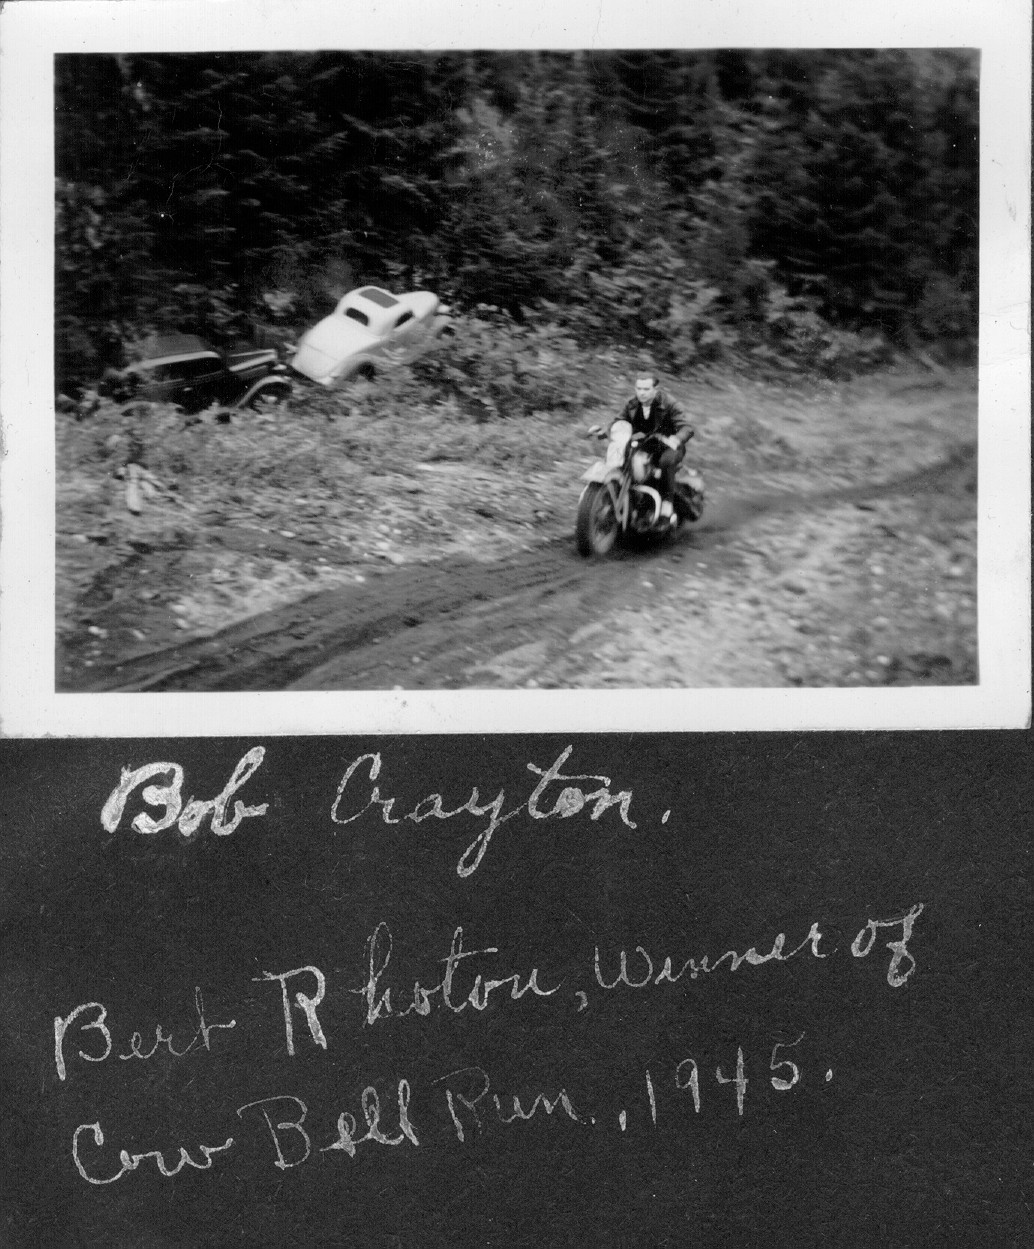 Bob Crayton.
Bert Rhoton, Winner of
Cow Bell Run., 1945.